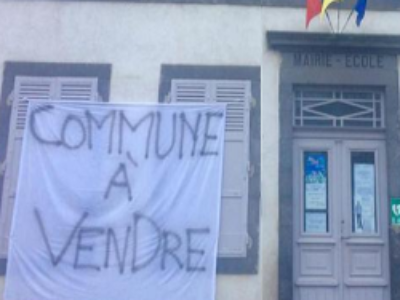 COMMUNE
À
VENDRE
MAIRIE - ECOLE